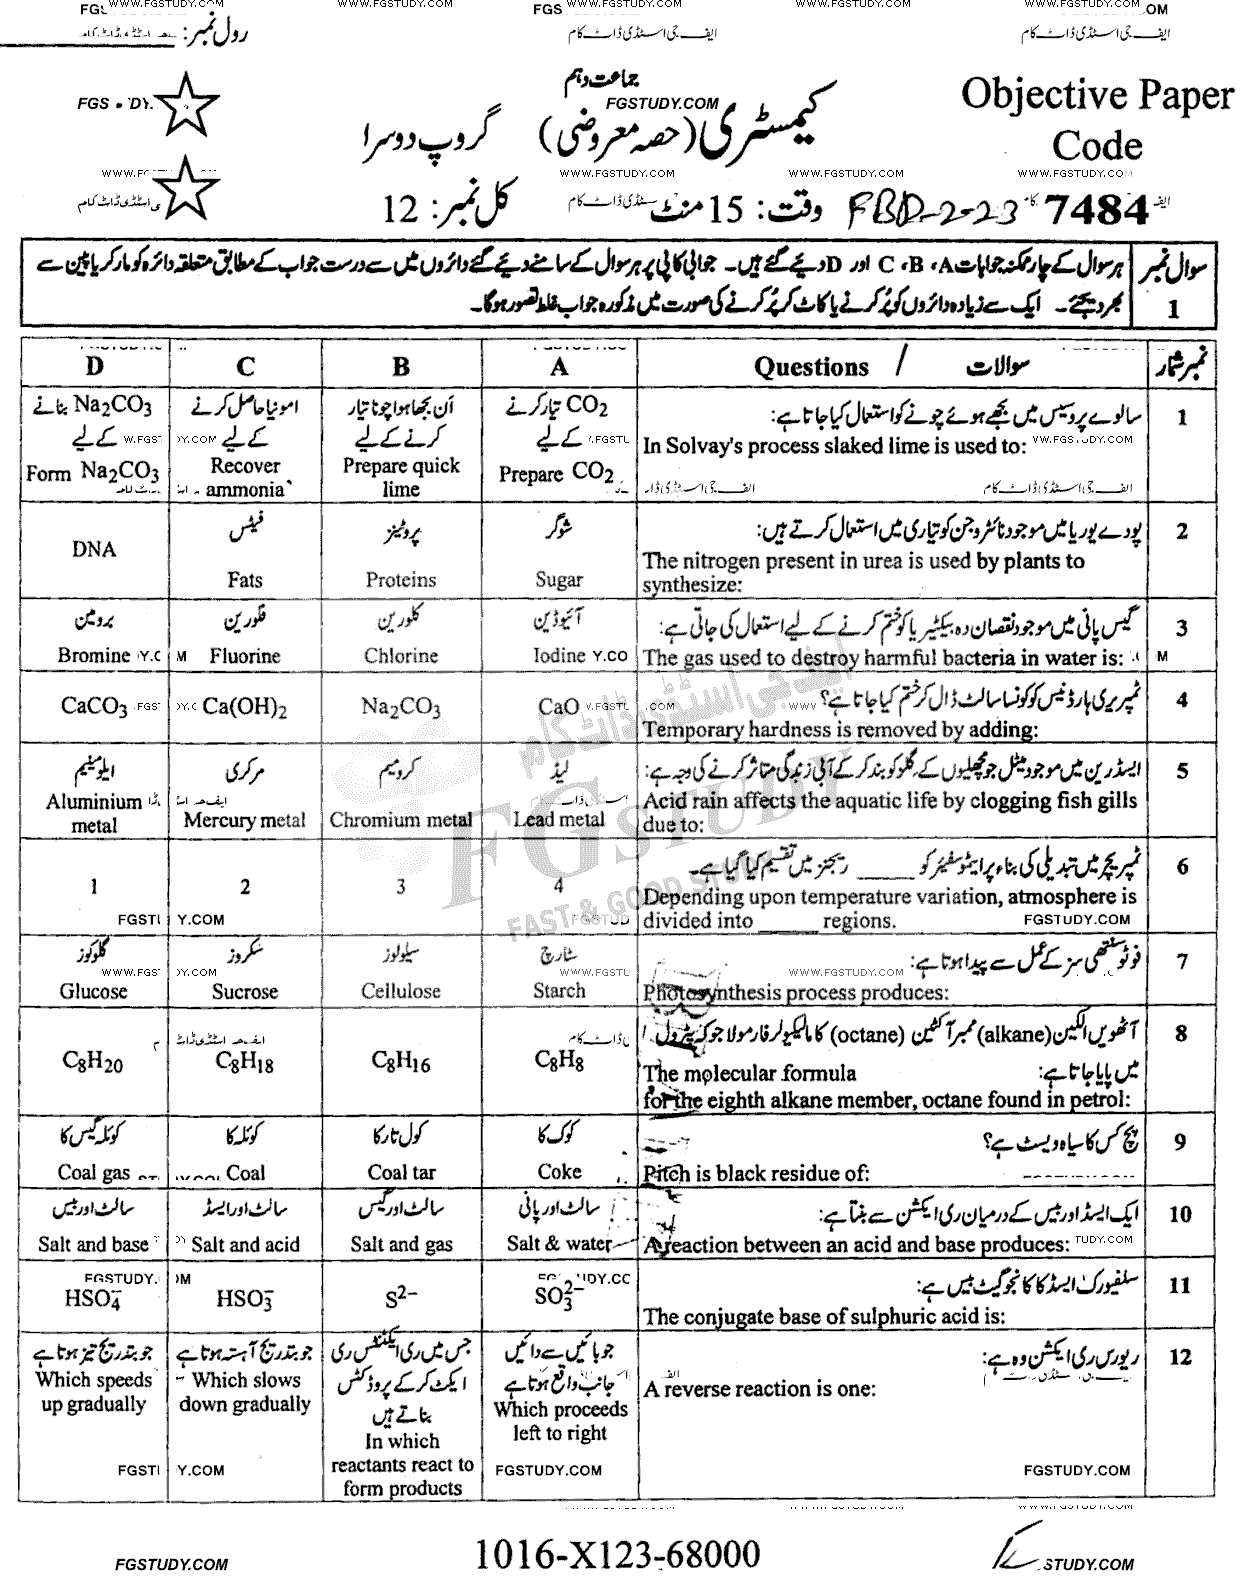 FGSTUDY.COM
WWW.FGSTUDY.COM
رول نمبر:
ایف جی اسٹڈی ڈاٹ کام
جماعت دہم
FGSTUDY.COM
Objective Paper
کیمسٹری (حصہ معروضی) گروپ دوسرا
Code
WWW.FGSTUDY.COM
7484 FBD-2-23 وقت: 15 منٹ کل نمبر: 12
سوال نمبر 1
ہر سوال کے چار ممکنہ جوابات A، B، C اور D دیے گئے ہیں۔ جوابی کاپی پر ہر سوال کے سامنے دیے گئے دائروں میں سے درست جواب کے مطابق متعلقہ دائرہ کو مارکر یا پین سے
بھر دیجئے۔ ایک سے زیادہ دائروں کو پُر کرنے یا کاٹ کر پُر کرنے کی صورت میں مذکورہ جواب غلط تصور ہوگا۔
نمبر شمار Questions / سوالات A B C D
1 سالوے پروسیس میں بجھے ہوئے چونے کو استعمال کیا جاتا ہے:
In Solvay's process slaked lime is used to:
CO2 تیار کرنے کے لیے
Prepare CO2
اَن بجھا ہوا چونا تیار کرنے کے لیے
Prepare quick lime
امونیا حاصل کرنے کے لیے
Recover ammonia
Na2CO3 بنانے کے لیے
Form Na2CO3
2 پودے یوریا میں موجود نائٹروجن کو تیاری میں استعمال کرتے ہیں:
The nitrogen present in urea is used by plants to
synthesize:
شوگر
Sugar
پروٹینز
Proteins
فیٹس
Fats
DNA
3 گیس پانی میں موجود نقصان دہ بیکٹیریا کو ختم کرنے کے لیے استعمال کی جاتی ہے:
The gas used to destroy harmful bacteria in water is:
آئیوڈین
Iodine
کلورین
Chlorine
فلورین
Fluorine
برومین
Bromine
4 ٹمپریری ہارڈنیس کو کونسا سالٹ ڈال کر ختم کیا جاتا ہے؟
Temporary hardness is removed by adding:
CaO
Na2CO3
Ca(OH)2
CaCO3
5 ایسڈ رین میں موجود میٹل جو مچھلیوں کے گلز کو بند کر کے آبی زندگی متاثر کرنے کی وجہ ہے:
Acid rain affects the aquatic life by clogging fish gills
due to:
لیڈ
Lead metal
کرومیم
Chromium metal
مرکری
Mercury metal
ایلومینیم
Aluminium metal
6 ٹمپریچر میں تبدیلی کی بناء پر ایٹموسفیئر کو _____ ریجنز میں تقسیم کیا گیا ہے۔
Depending upon temperature variation, atmosphere is
divided into _____ regions.
4
3
2
1
7 فوٹوسنتھی سز کے عمل سے پیدا ہوتا ہے:
Photosynthesis process produces:
سٹارچ
Starch
سیلولوز
Cellulose
سکروز
Sucrose
گلوکوز
Glucose
8 آٹھویں الکین (alkane) ممبر آکٹین (octane) کا مالیکیولر فارمولا جو کہ پیٹرول
میں پایا جاتا ہے:
The molecular formula
for the eighth alkane member, octane found in petrol:
C8H8
C8H16
C8H18
C8H20
9 پچ کس کا سیاہ ویسٹ ہے؟
Pitch is black residue of:
کوک کا
Coke
کول تار کا
Coal tar
کوئلہ کا
Coal
کوئلہ گیس کا
Coal gas
10 ایک ایسڈ اور بیس کے درمیان ری ایکشن سے بنتا ہے:
A reaction between an acid and base produces:
سالٹ اور پانی
Salt & water
سالٹ اور گیس
Salt and gas
سالٹ اور ایسڈ
Salt and acid
سالٹ اور بیس
Salt and base
11 سلفیورک ایسڈ کا کانجوگیٹ بیس ہے:
The conjugate base of sulphuric acid is:
SO3^2−
S^2−
HSO3^−
HSO4^−
12 ریورس ری ایکشن وہ ہے:
A reverse reaction is one:
جو بائیں سے دائیں جانب واقع ہوتا ہے
Which proceeds left to right
جس میں ری ایکٹنٹس ری ایکٹ کر کے پروڈکٹس بناتے ہیں
In which reactants react to form products
جو بتدریج آہستہ ہوتا ہے
Which slows down gradually
جو بتدریج تیز ہوتا ہے
Which speeds up gradually
FGSTUDY
FAST & GOOD STUDY
FGSTUDY.COM
1016-X123-68000